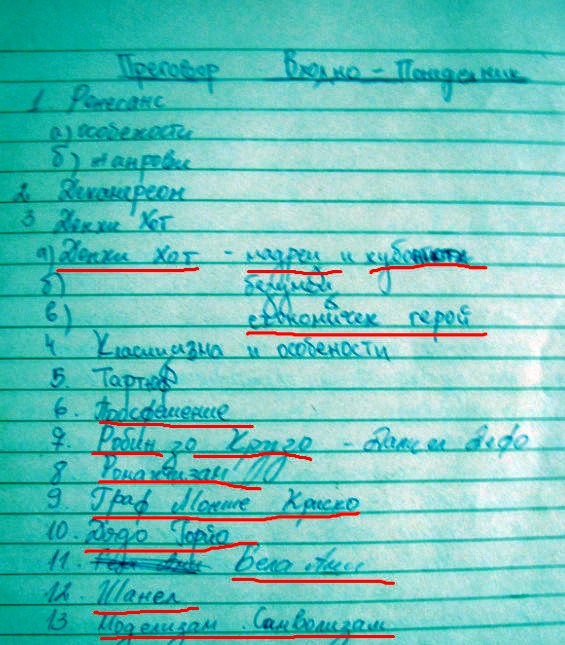 Преговор Входно - Понеделник
1 Ренесанс
а) особености
б) жанрови
2. Декамерон
3 Донки Хот
а) Донки Хот - мадрец и
б) безумец
в) герой
4 Класицизма и особености
5. Тартюф
6. Просфещение
7. Робин зо Крузо - Даниел Дефо
8. Романтизам
9. Граф Монте Криско
10. Дядо Горйо
11. Бел Ами
12. Шанел
13 Моделизам. Символизам